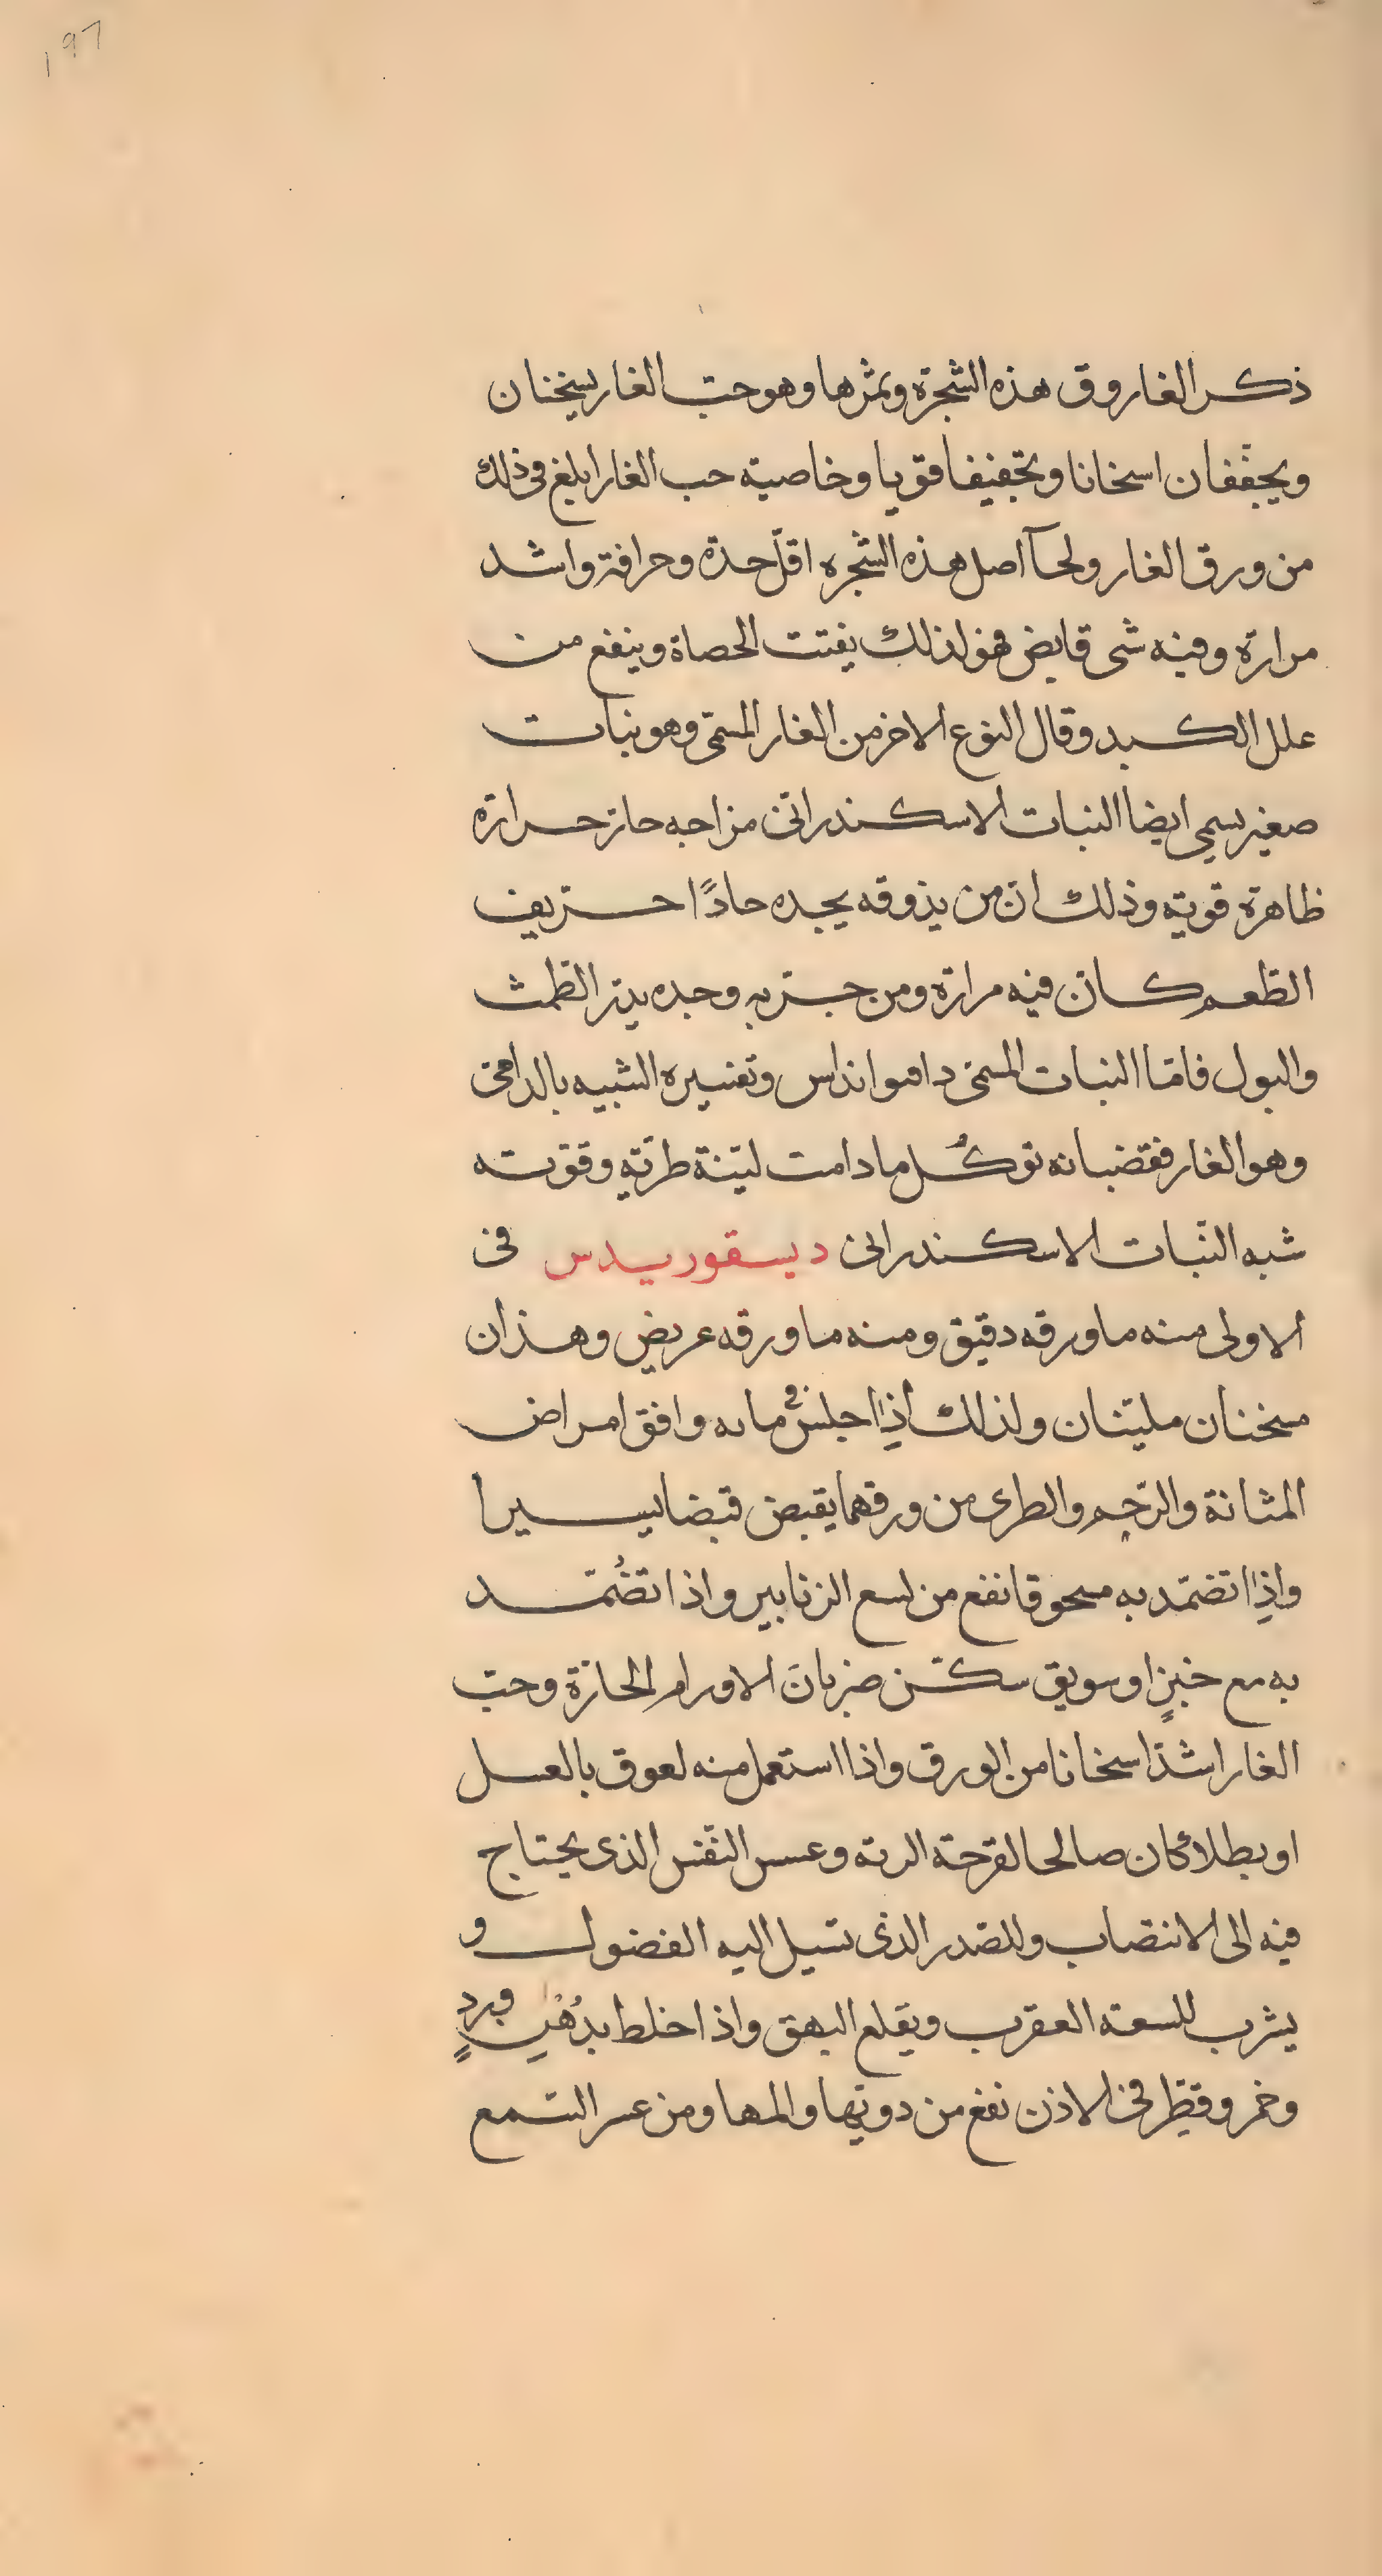 ١٩٦
ذكر الغار ورق هذه الشجرة وثمرها وهو حبّ الغار يسخنان
ويجفّفان اسخانا وتجفيفا قويا وخاصية حب الغار ابلغ فى ذلك
من ورق الغار ولحآ اصل هذه الشجره اقلّ حدة وحرافة واشد
مرارة وفيه شى قابض فهو لذلك يفتت الحصاة وينفع من
علل الكبد وقال النوع الاخر من الغار المسمّى وهو نبات
صغير يسمى ايضا النبات الاسكندرانى مزاجه حار حرارة
ظاهرة قوية وذلك انّ من يذوقه يجده حادًا حريف
الطعم كان فيه مرارة ومن جربه وجده يدر الطمث
والبول فامّا النبات المسمى دامواىداس وتفسيره الشبيه بالدامى
وهو الغار فقضبانه توكُل مادامت ليّنة طريّة وقوّته
شبه النّبات الاسكندرانى ديسقوريدس فى
الاولى منه ما ورقه دقيق ومنه ما ورقه عريض وهذان
مسخنان مليّنان ولذلك اذا جلس فى مائه وافق امراض
المثانة والرّحم والطرى من ورقهما يقبض قبضا يسيرا
واذا تضمّد به مسحوقا نفع من لسع الزنابير واذا تضُمّد
به مع خبزٍ او سويق سكّن ضربانَ الاورام الحارّة وحبّ
الغار اشدّ اسخانا من الورق واذا استعمل منه لعوق بالعسل
او بطلاءٍ كان صالحا لقرحة الرية وعسر النّفَس الذى يحتاج
فيه الى الانتصاب وللصّدر الذى تسيل اليه الفضول و
يشرب للسعة العقرب ويقلع البهق واذا خلط بدُهنِ وردٍ
وخمر وقطِّر فى الاذن نفع من دويّها والمها ومن عسر السّمع